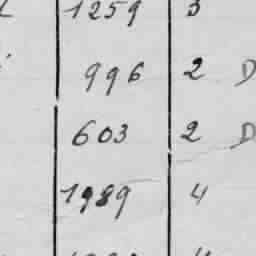 1259 3
996 2 D
603 2 D
1989 4